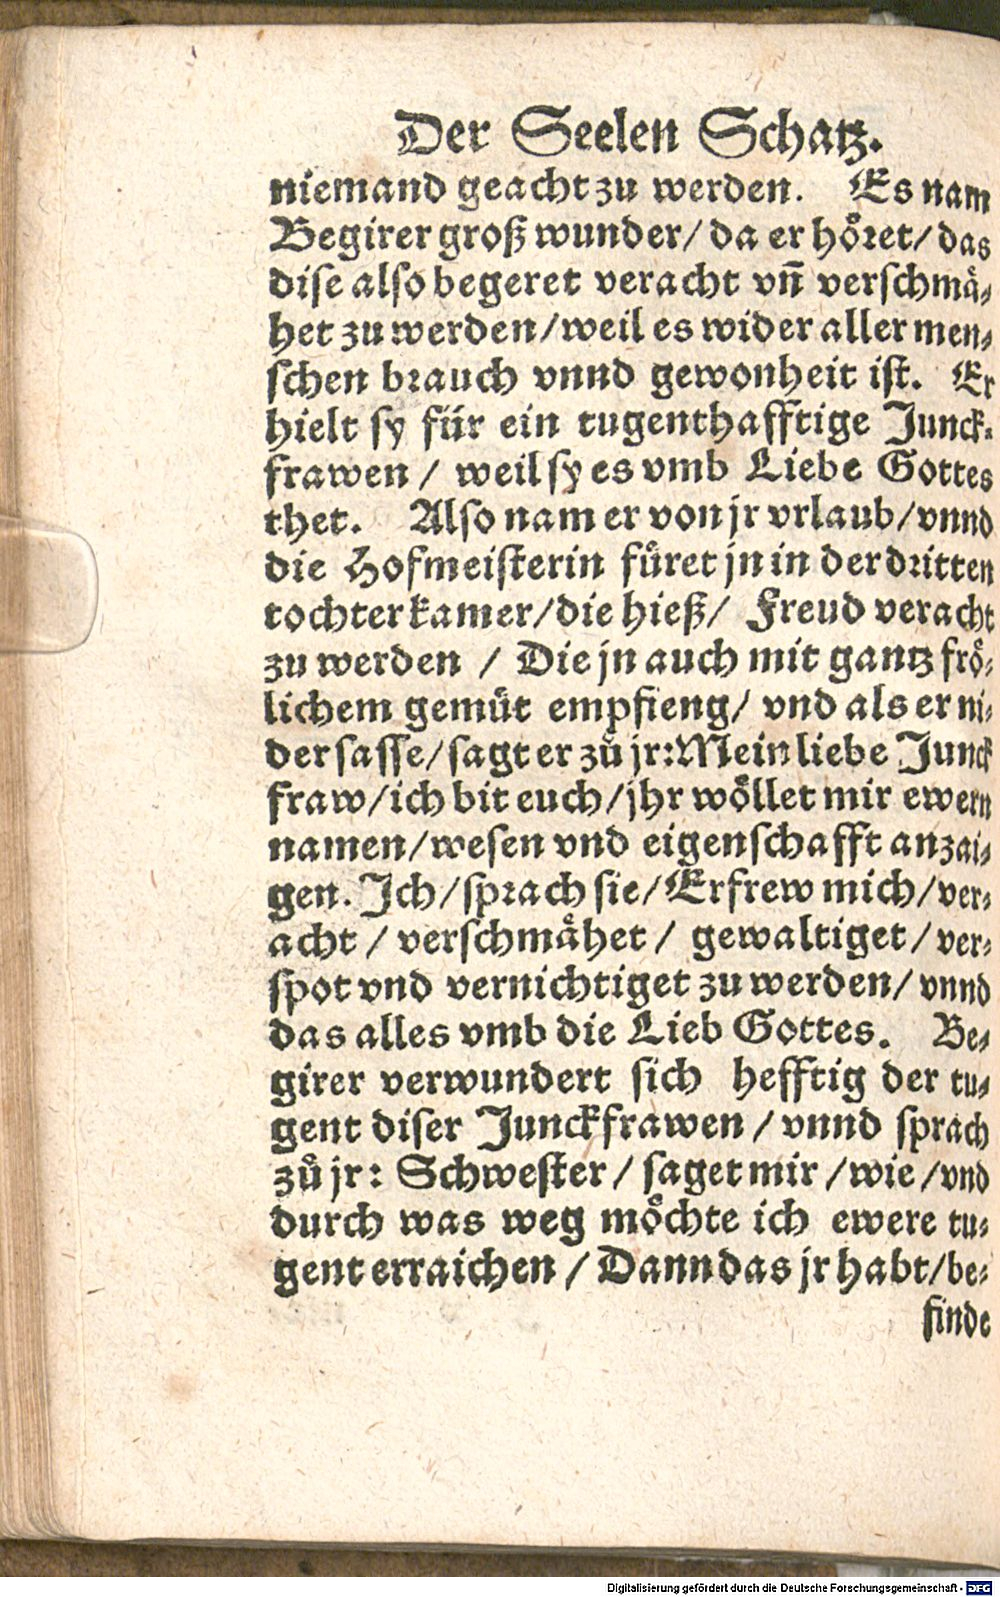 Der Seelen Schatz.
niemand geacht zu werden. Es nam
Begirer groß wunder/ da er hoͤret/ das
dise also begeret veracht vñ verschmaͤ⸗
het zu werden/weil es wider aller men⸗
schen brauch vnnd gewonheit ist. Er
hielt sy für ein tugenthafftige Junck⸗
frawen / weil sy es vmb Liebe Gottes
thet. Also nam er von jr vrlaub/vnnd
die Hofmeisterin fuͤret jn in der dritten
tochter kamer/die hieß/ Freud veracht
zu werden / Die jn auch mit gantz froͤ⸗
lichem gemuͤt empfieng/ vnd als er ni⸗
der sasse/sagt er zů jr:Mein liebe Junck
fraw/ich bit euch/jhr woͤllet mir ewern
namen/wesen vnd eigenschafft anzai⸗
gen. Ich/sprach sie/Erfrew mich/ver⸗
acht / verschmaͤhet / gewaltiget/ver⸗
spot vnd vernichtiget zu werden/ vnnd
das alles vmb die Lieb Gottes. Be⸗
girer verwundert sich hefftig der tu⸗
gent diser Junckfrawen / vnnd sprach
zů jr: Schwester/ saget mir /wie /vnd
durch was weg moͤchte ich ewere tu⸗
gent erraichen / Dann das jr habt/be⸗
finde
Digitalisierung gefördert durch die Deutsche Forschungsgemeinschaft - DFG